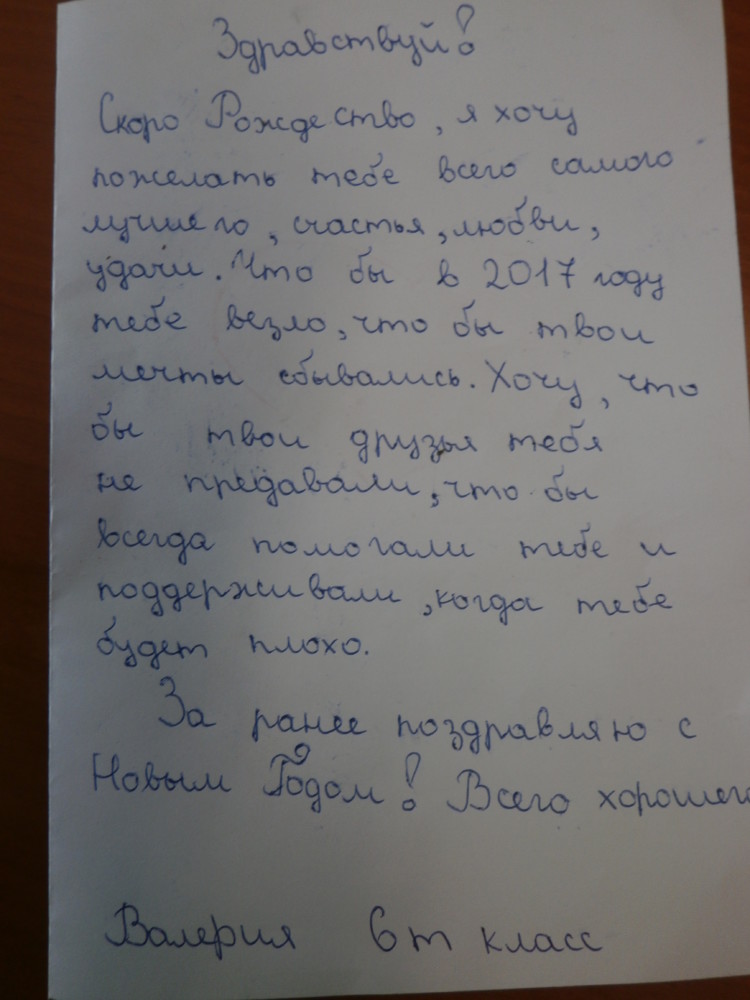 Здравствуй!
Скоро Рождество, я хочу
пожелать тебе всего самого
лучшего, счастья, любви,
удачи. Что бы в 2017 году
тебе везло, что бы твои
мечты сбывались. Хочу, что
бы твои друзья тебя
не предавали, что бы
всегда помогали тебе и
поддерживали, когда тебе
будет плохо.
За ранее поздравляю с
Новым Годом! Всего хорошего
Валерия 6т класс